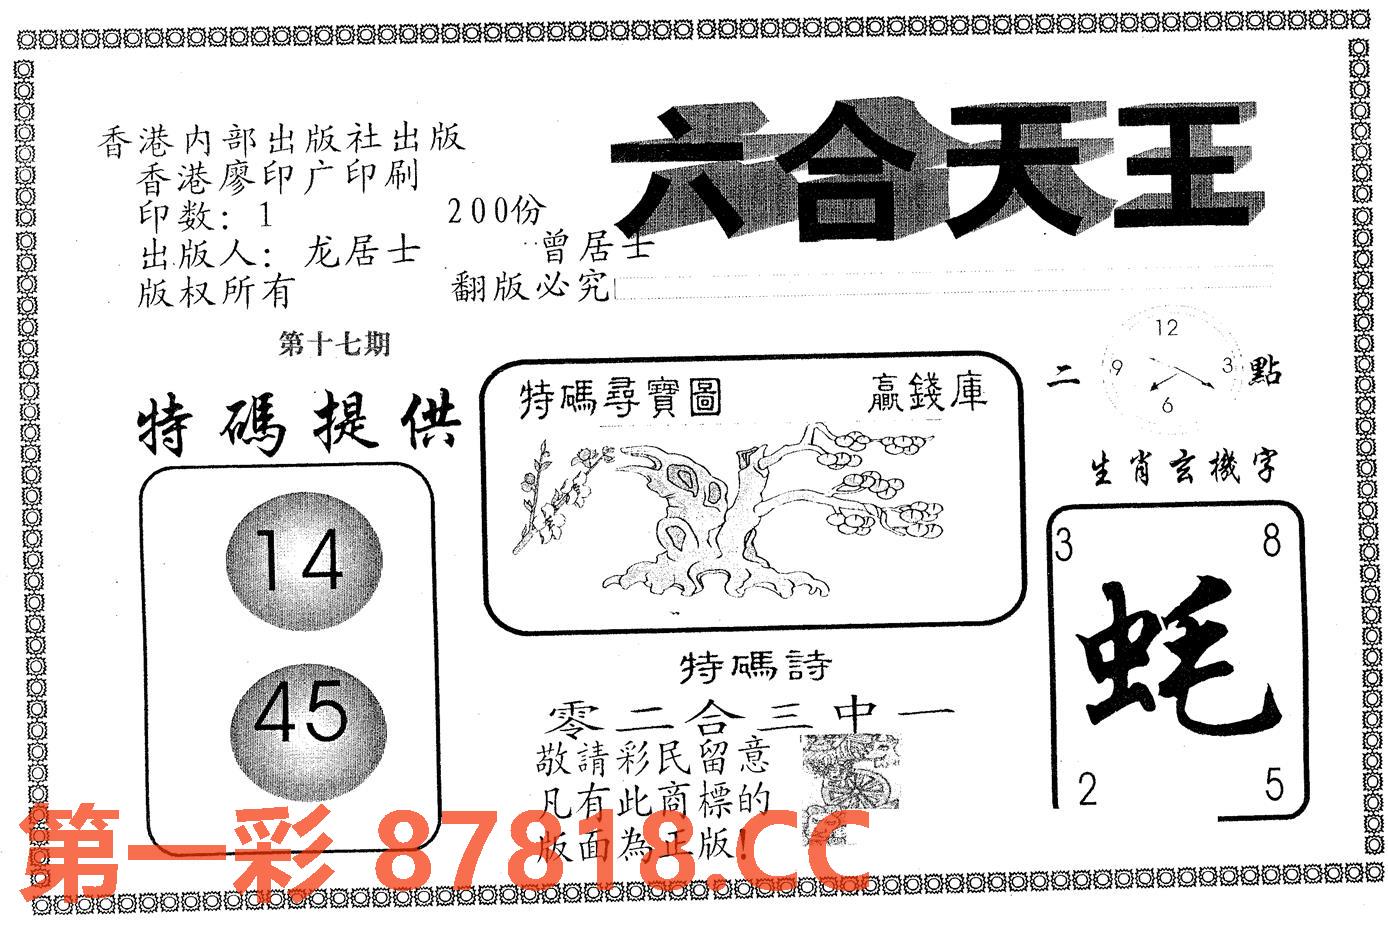 六合天王
香港内部出版社出版
香港廖印广印刷
印数: 1 200份
出版人: 龙居士 曾居士
版权所有 翻版必究
第十七期
特碼提供
14
45
特碼尋寶圖 贏錢庫
二 點
12
9 3
6
生肖玄機字
3 8
蚝
2 5
特碼詩
零二合三中一
敬請彩民留意
凡有此商標的
版面為正版!
第一彩 87818.CC